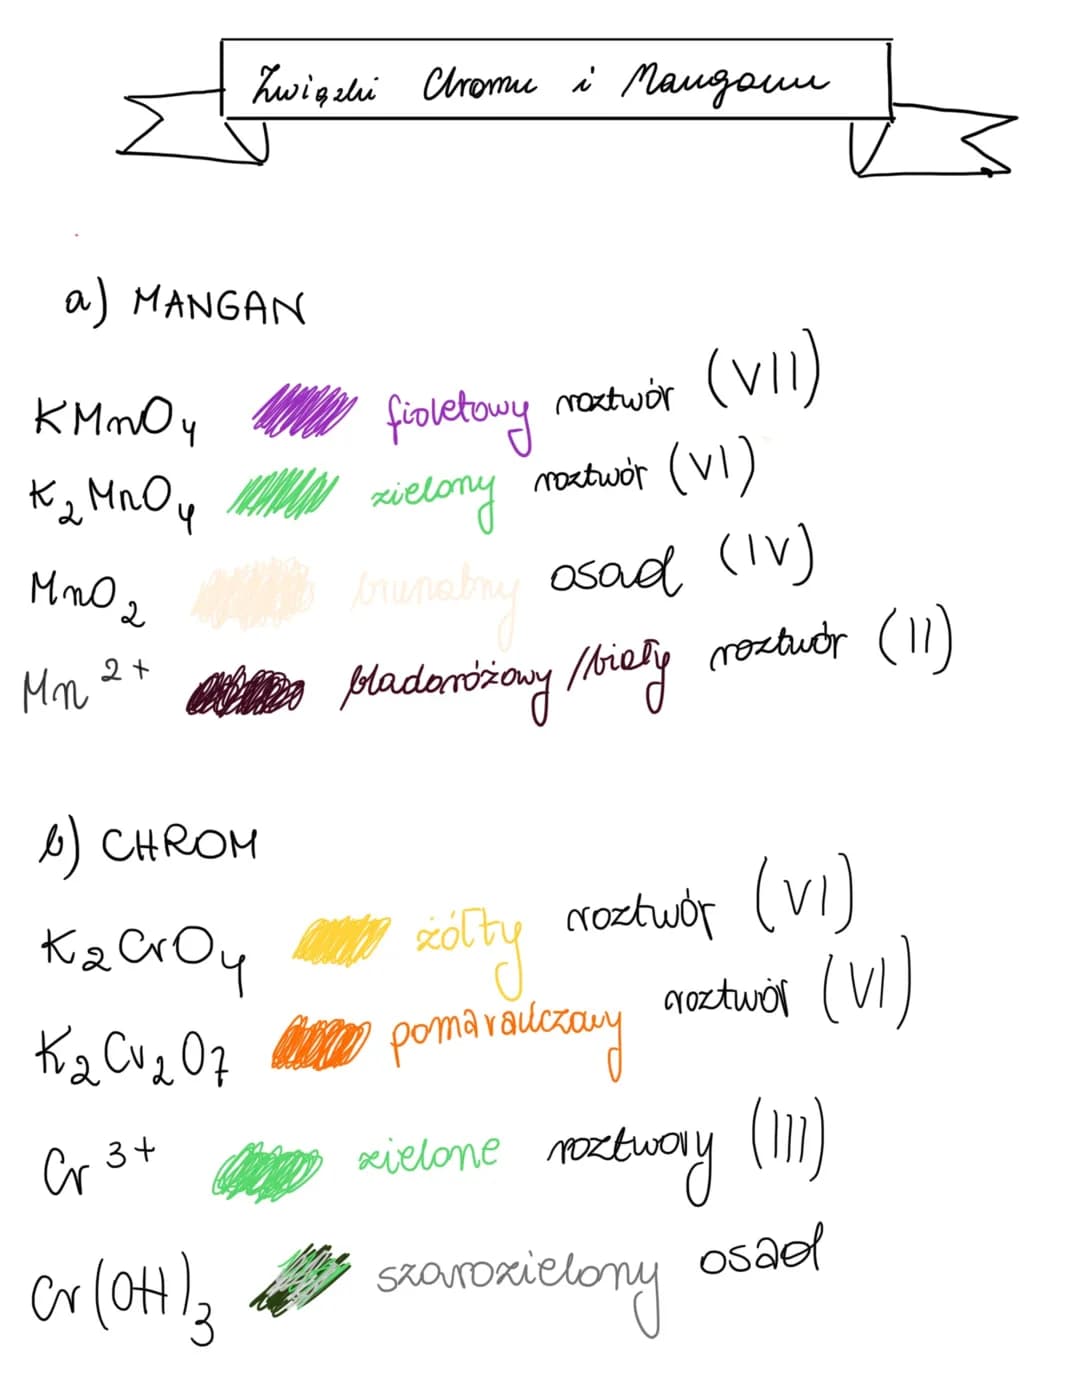 Związki Chromu i Manganu
a) MANGAN
KMnO4 fioletowy roztwór (VII)
K2MnO4 zielony roztwór (VI)
MnO2 brunatny osad (IV)
Mn2+ bladoróżowy/biały roztwór (II)
b) CHROM
K2CrO4 żółty roztwór (VI)
K2Cr2O7 pomarańczowy roztwór (VI)
Cr3+ zielone roztwory (III)
Cr(OH)3 szarozielony osad